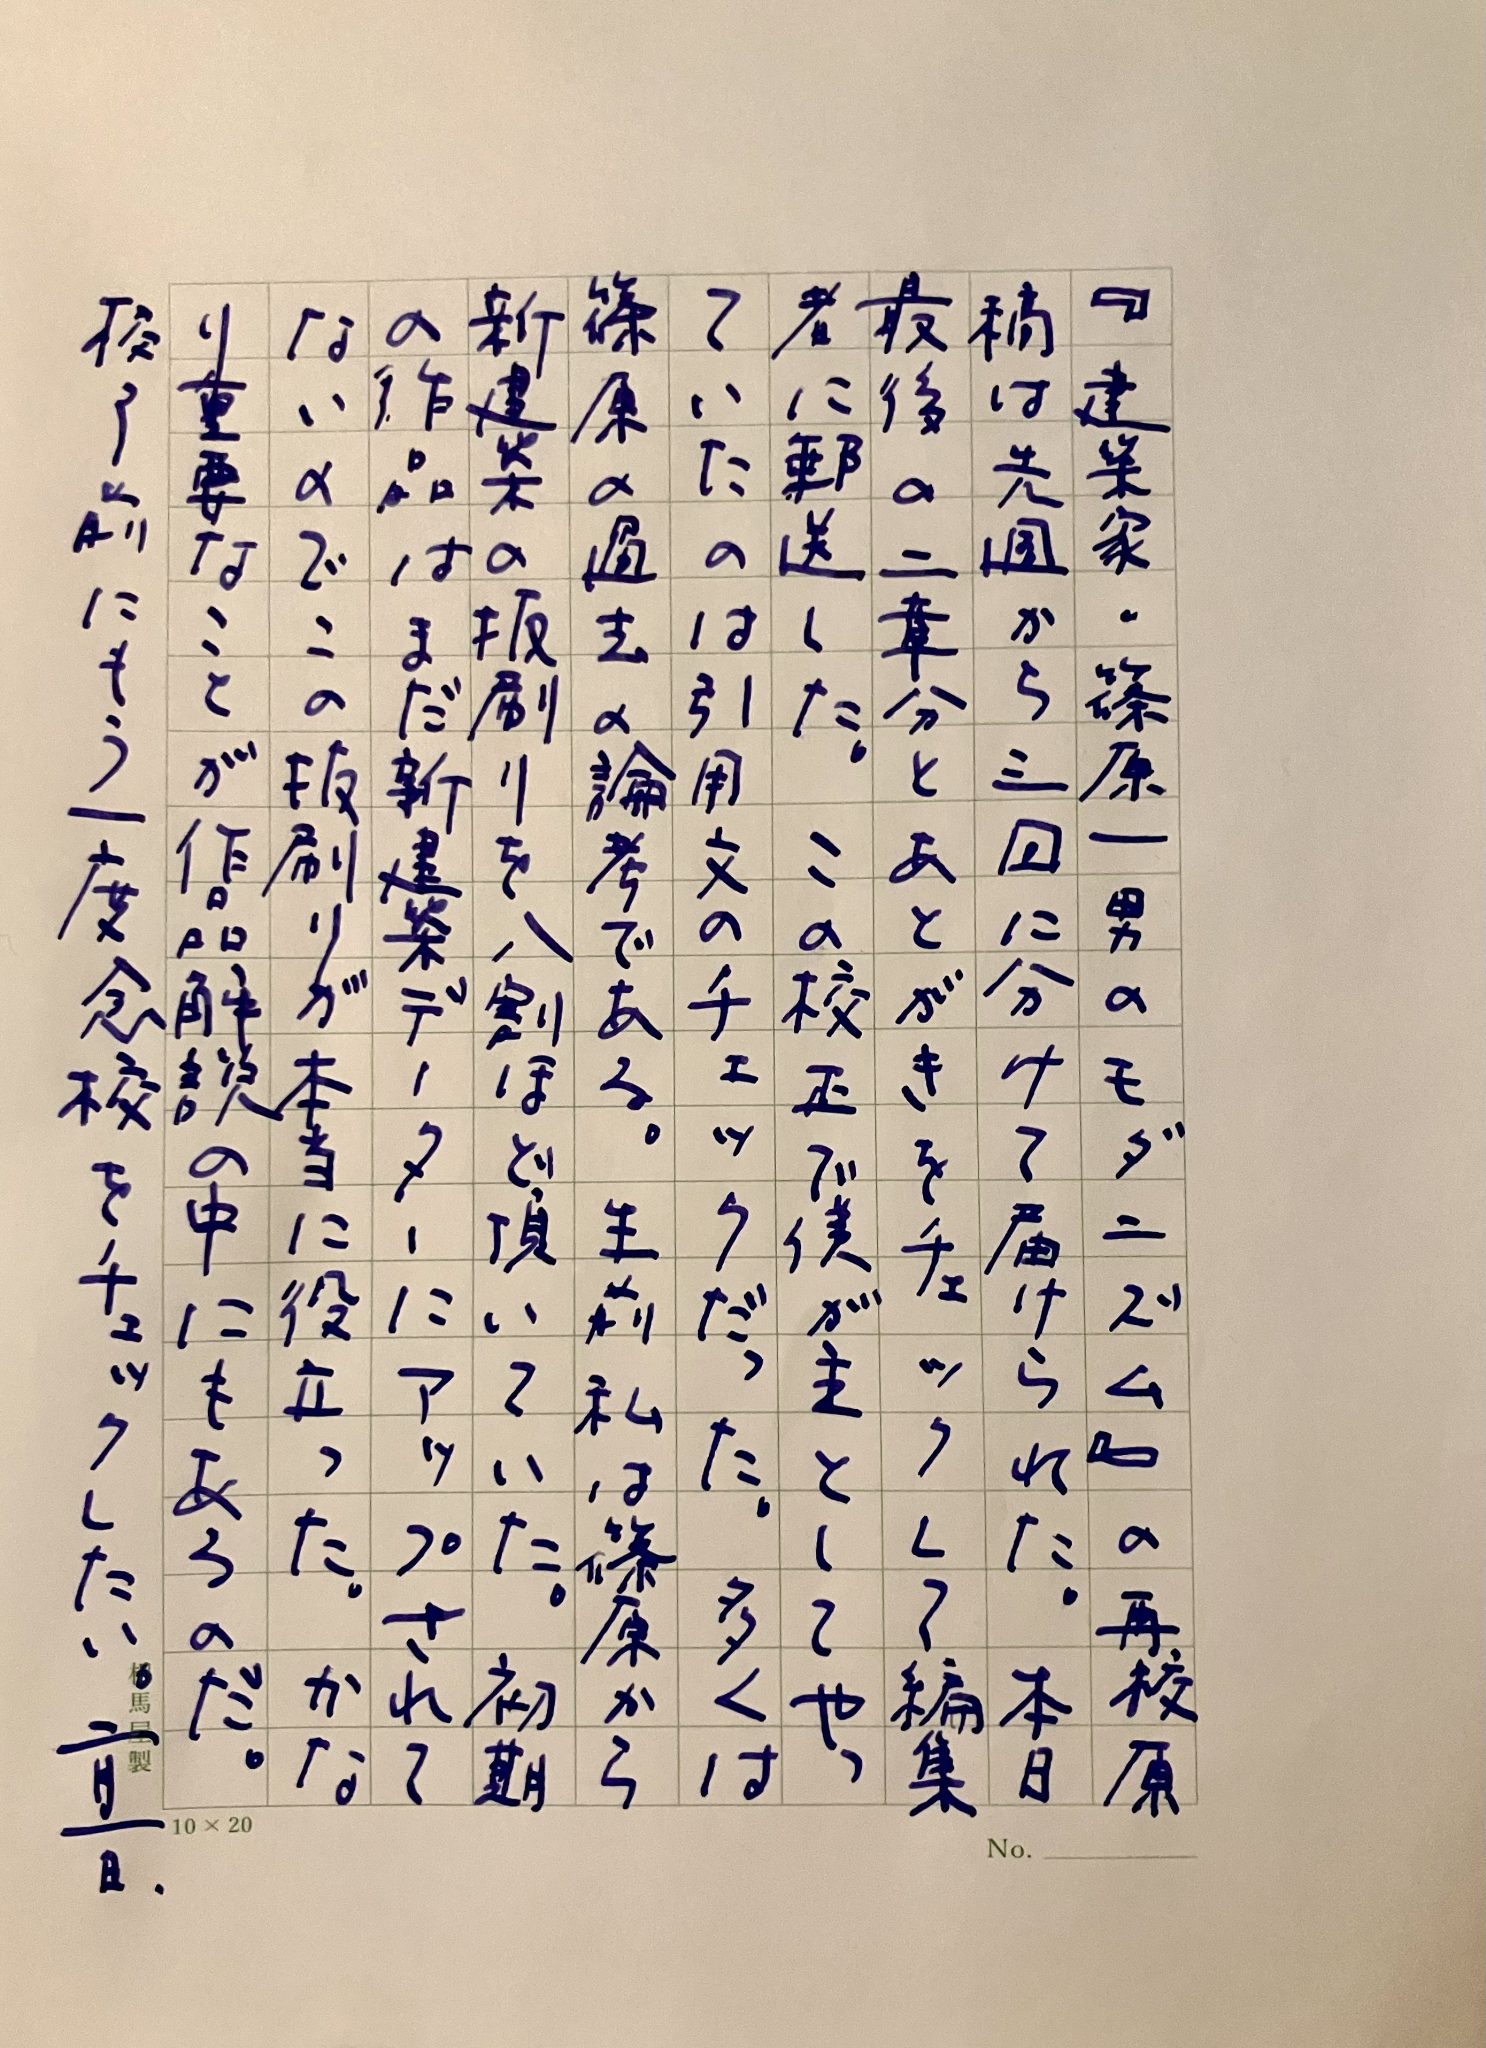 『建築家・篠原一男のモダニズム』の再校原
稿は先週から三回に分けて届けられた。本日
最後の二章分とあとがきをチェックして編集
者に郵送した。この校正で僕が主としてやっ
ていたのは引用文のチェックだった。多くは
篠原の過去の論考である。生前私は篠原から
新建築の抜刷りを八割ほど頂いていた。初期
の作品はまだ新建築データーにアップされて
ないのでこの抜刷りが本当に役立った。かな
り重要なことが作品解説の中にもあるのだ。
校了前にもう一度念校をチェックしたい。二月一日.
相馬屋製
10×20
No.